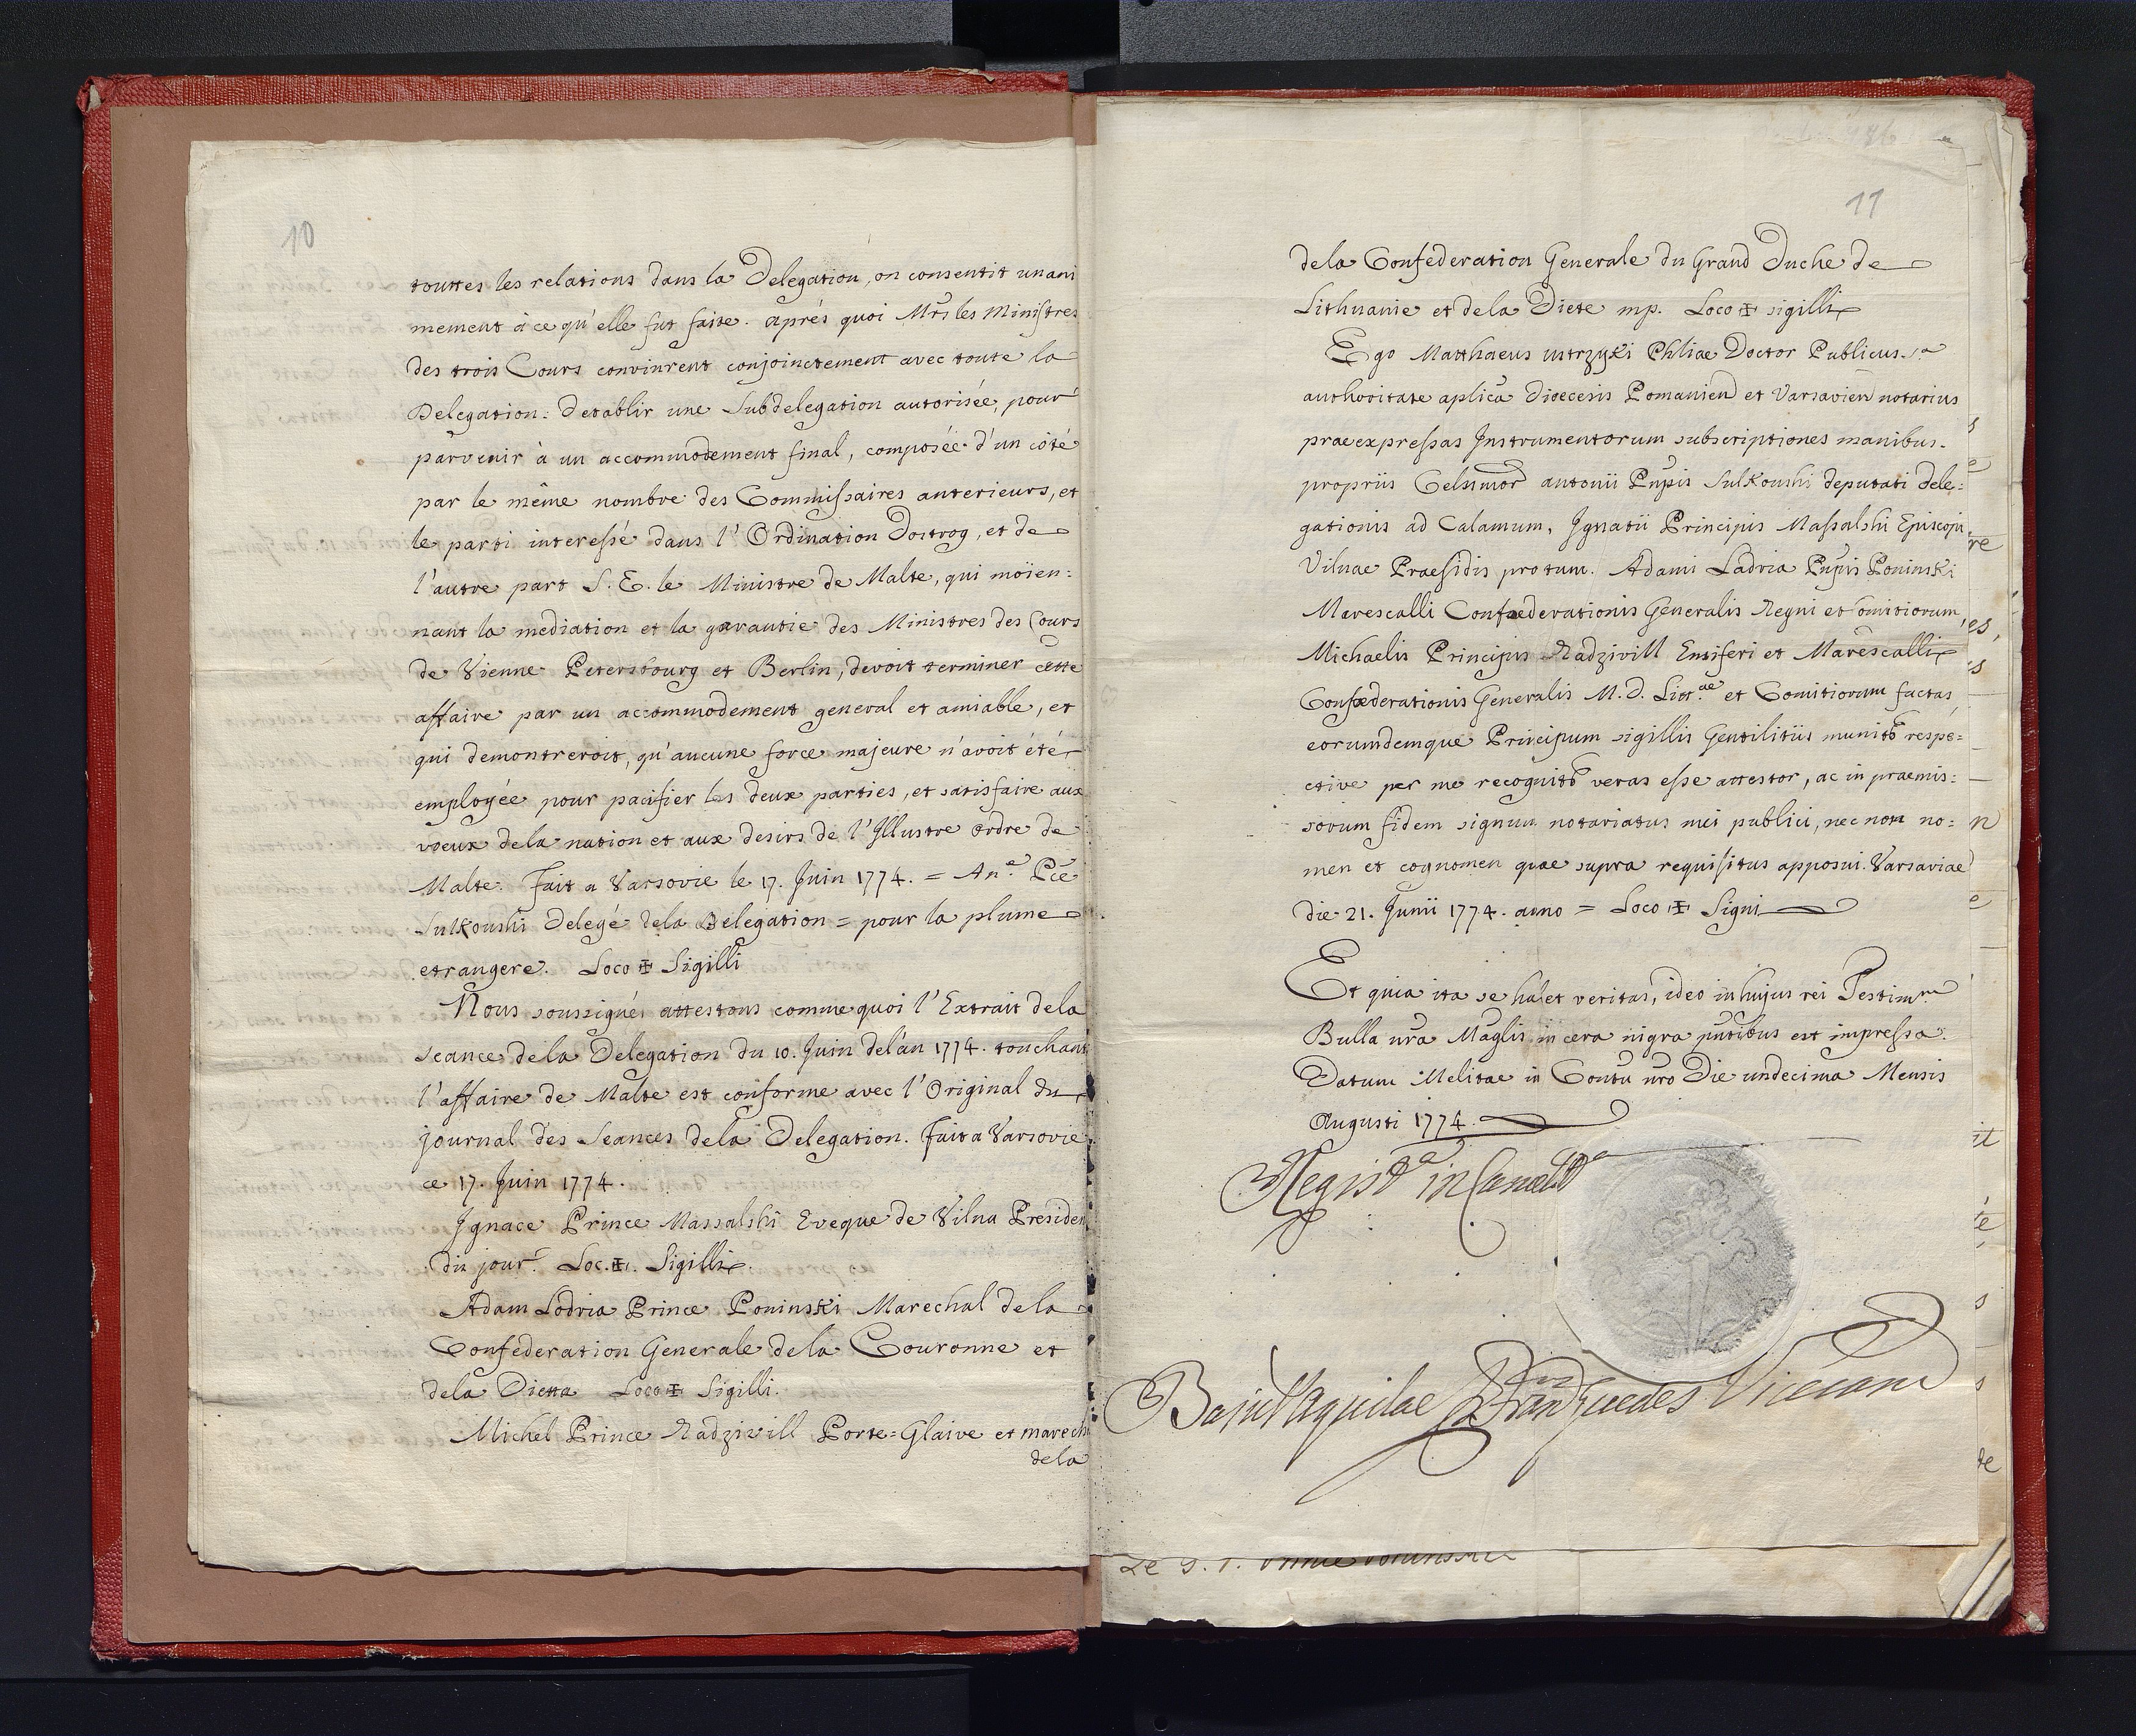 10
touttes les relations dans la Delegation, on consentit unani
mement à ce qu'elle fut faite. après quoi Mrs les Ministres
des trois Cours convinrent conjoinctement avec toute la
Delegation: detablir une Subdelegation autorisée, pour
parvenir à un accommodement final, composée d'un coté
par le même nombre des Commissaires anterieurs, et
le parti interessé dans l'Ordination Dostrog, et de
l'autre part S. E. le Ministre de Malte, qui moïen:
nant la mediation et la garantie des Ministres des Cours
de Vienne Petersbourg et Berlin, devoit terminer cette
affaire par un accommodement general et amiable, et
qui demontreroit, qu'aucune force majeure n'avoit été
employée pour pacifier les deux parties, et satisfaire aux
voeux dela nation et aux desirs de l'Illustre ordre de
Malte. Fait a Varsovie le 17. Juin 1774. = An.e Pce
Sulkoushi Delegé dela Delegation = pour la plume
etrangere. Loco ✠ Sigilli
Nous soussignés attestons comme quoi l'Extrait dela
seance dela Delegation du 10. Juin del'an 1774. touchant
l'affaire de Malte est conforme avec l'Original du
journal des Seances dela Delegation. Fait a Varsovie
ce 17. Juin 1774.
Ignace Prince Massalshi Eveque de Vilna Presiden
du jour. Loc. ✠. Sigilli
Adam Lodria Prince Poninski Marechal dela
Confederation Generale dela Couronne et
dela Dietta Loco ✠ Sigilli.
Michel Prince Radzivill Porte=Glaive et marech
dela
11
dela Confederation Generale du Grand Duche de
Lithuanie et dela Diete mp. Loco ✠ sigilli
Ego Matthaeus ustrzyki Phliae Doctor Publicus
authoritate aplica Dioecesis Pomanien et Varsavien notarius
praeexpressas Instrumentorum subscriptiones manibus
propriis Celsimor antonii Pnpis Sulkoushi deputati dele=
gationis ad Calamum, Ignatii Principis Massalshi Episcopi
Vilnae Praesidis protum. Adami Ladria Pnpis Poninski
Marescalli Confaederationis Generalis Regni et Comitiorum,
Michaelis Principis Radzivill Ensiferi et Marescalli
Confaederationis Generalis M. D. Litt.ae et Comitiorum factas,
eorumdemque Principum sigillis Gentilitiis munitas respe=
ctive per me recognitas veras esse attestor, ac in praemis:
sorum fidem signum notariatus mei publici, nec non no:
men et cognomen quae supra requisitus apposui. Varsaviae
die 21. Junii 1774. anno = Loco ✠ Signi
Et quia ita se habet veritas, ideo in hujus rei Testim.m
Bulla nra Maglis in cera nigra pntibus est impressa.
Datum Melitae in Contu nro Die undecima Mensis
Augusti 1774
Regist.a in Cancell.a
Bajul. Aquilae Fran Guedes Vicecanc